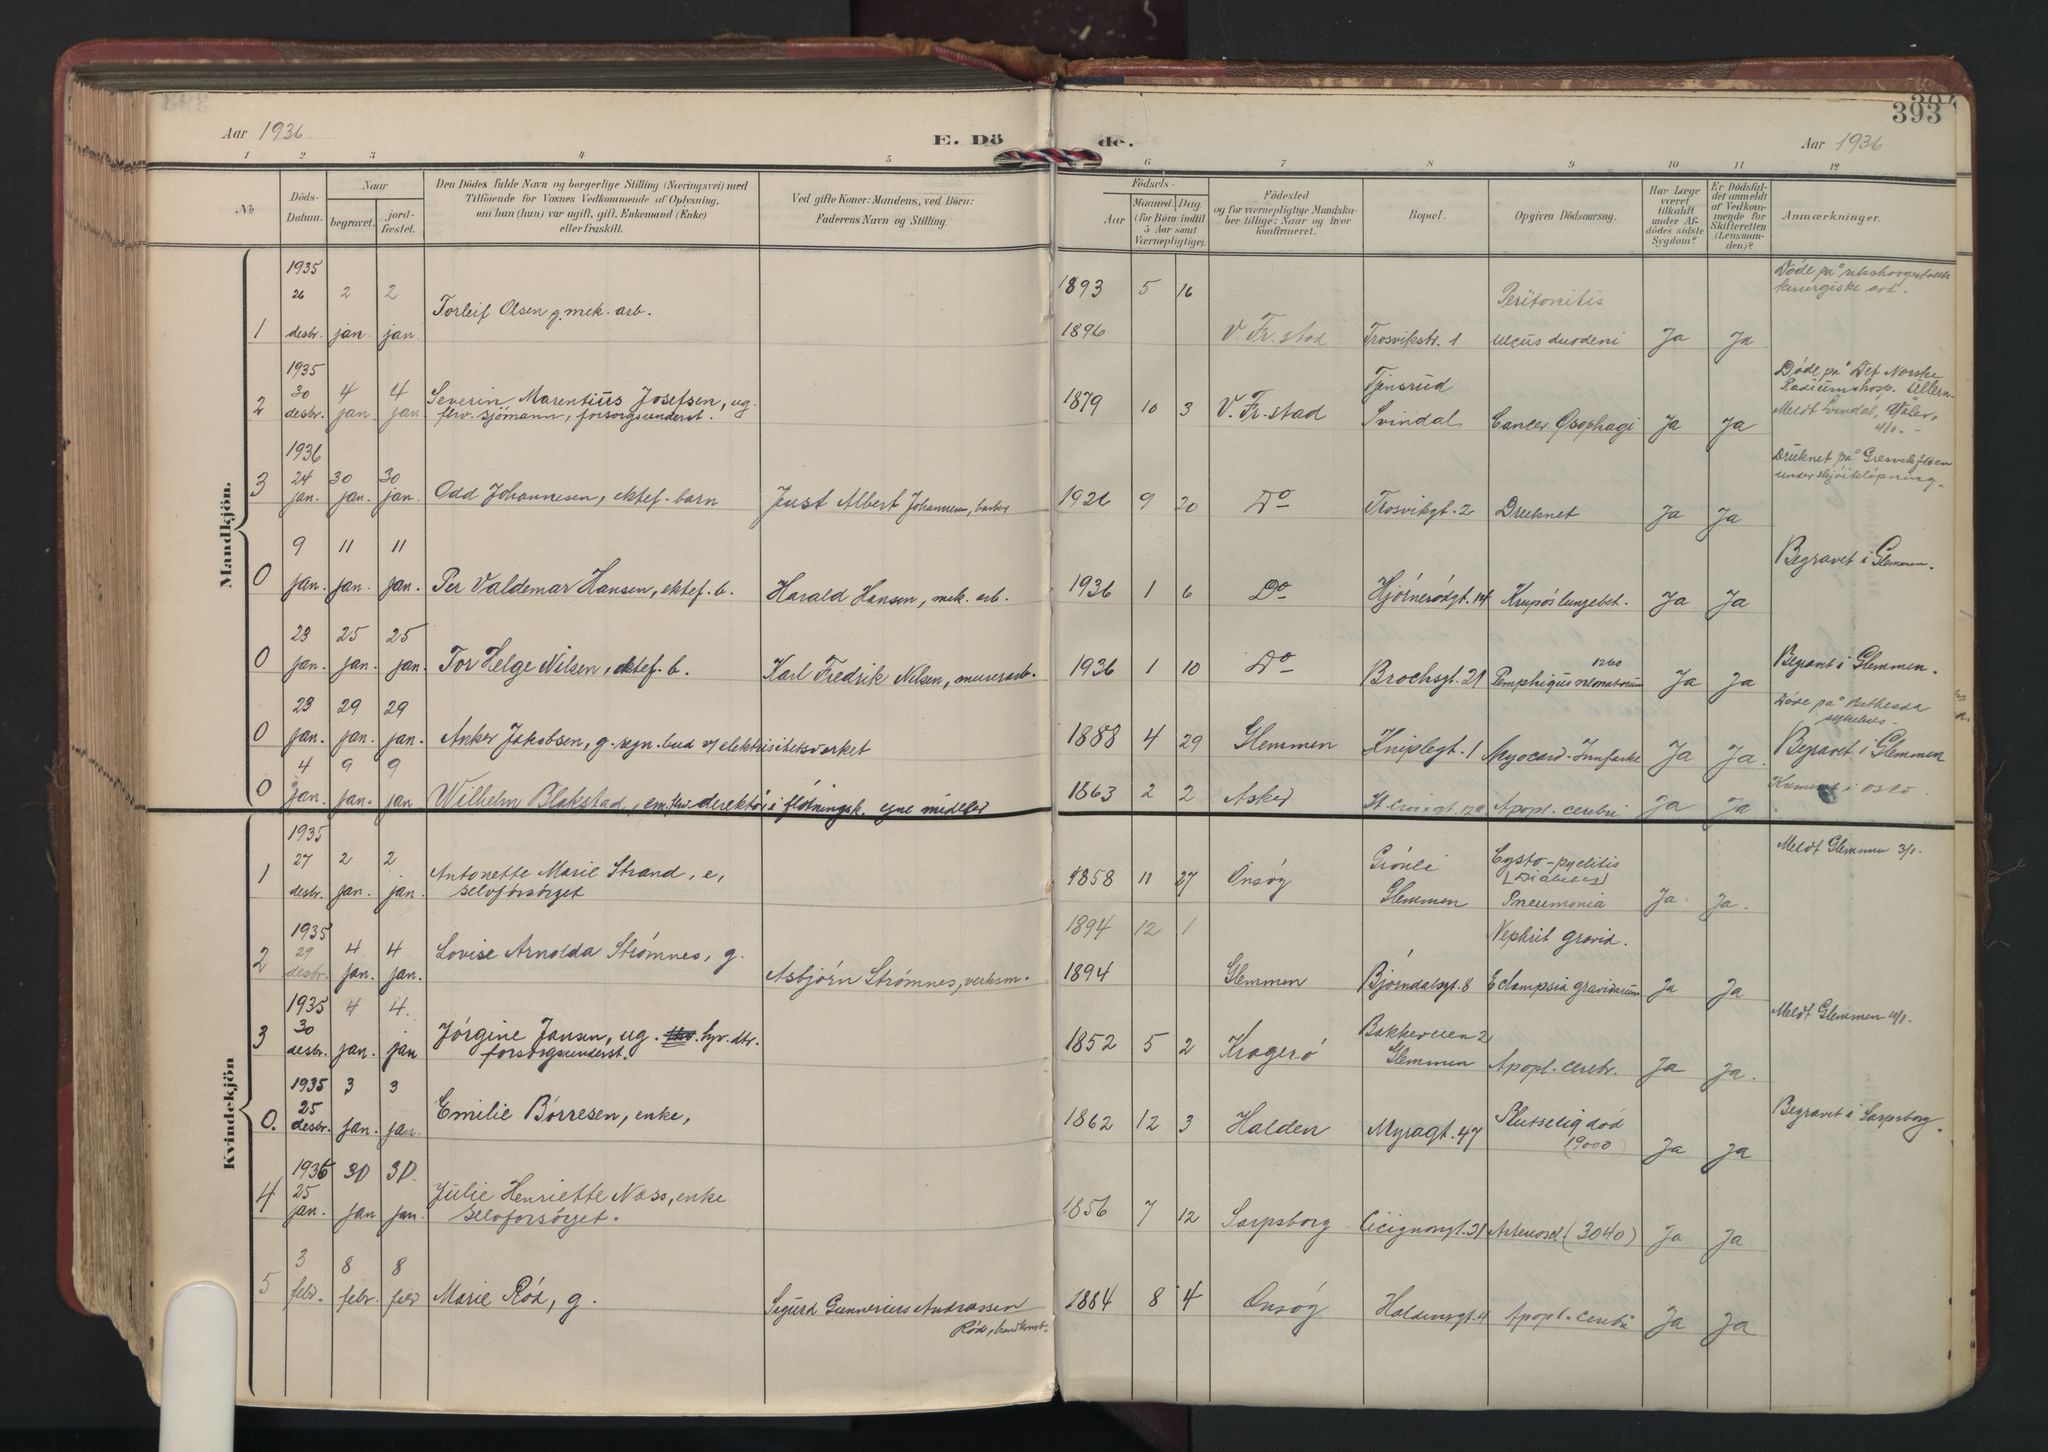 393
Aar 1936.
E. Döde.
Aar 1936
1 2 3 4 5 6 7 8 9 10 11 12
No
Döds-Datum.
Naar
begravet.
jordfæstet.
Den Dödes fulde Navn og borgerlige Stilling (Næringsvei) med
Tilföiende for Voxnes Vedkommende af Oplysning,
om han (hun) var ugift, gift, Enkemand (Enke)
eller fraskilt.
Ved gifte Koner: Mandens, ved Börn:
Faderens Navn og Stilling.
Födsels-
Aar
Maaned Dag
(for Börn indtil
5 Aar samt
Værnepligtige).
Födested
og for værnepligtige Mandskaber tillige: Naar og hvor
konfirmeret.
Bopæl.
Opgiven Dödsaarsag.
Har Læge
været
tilkaldt
under Afdödes sidste
Sygdom?
Er Dödsfaldet anmeldt
af Vedkommende for
Skifteretten
(Lensmanden)?
Anmærkninger.
Mandkjön.
1 1935 26 desbr. 2 jan. 2 jan. Torleif Olsen g. mek. arb. 1893 5 16 1896 V. Fr.stad Trosvikstr. 1 Peritonitis ulcus duodeni Ja Ja Döde på rikshospitalets kirurgiske avd.
2 1935 30 desbr. 4 jan. 4 jan Severin Marentius Josefsen, ug.
frv. sjömann, forsorgsunderst. 1879 10 3 V. Fr.stad Svindal Cancer Øsophagi Ja Ja Döde på Det Norske
Radiumshosp. Ullern
Meldt Svindal, Våler, 4/1.
3 1936 24 jan. 30 jan. 30 jan. Odd Johannesen, ektef. barn Just Albert Johannesen, barber 1926 9 20 Do Trosvikgt. 2 Druknet Ja Ja Druknet på
under skjöiteløpning.
0 9 jan. 11 jan. 11 jan. Per Valdemar Hansen, ektef. b. Harald Hansen, mek. arb. 1936 1 6 Do Hjørnerødgt. 14 Krupøs lungebet. Ja Ja Begravet i Glemmen.
0 23 jan. 25 jan. 25 jan. Tor Helge Nilsen, ektef. b. Karl Fredrik Nilsen, murerarb. 1936 1 10 Do Brochsgt. 21 1260 Pemphigus neonatorum Ja Ja Begravet i Glemmen.
0 23 jan. 29 jan. 29 jan. Anker Jakobsen, g. regn. bud v/ elektrisitetsverket 1888 4 29 Glemmen Kniplegt. 1 Myocard-Innfarkt Ja Ja. Döde på Bethesda
sykehus.
Begravet i Glemmen
0 4 jan. 9 jan. 9 jan Wilhelm Blakstad, em. frv. direktör i flötningsk. egne midler 1863 2 2 Asker St. Croixgt. Apopl. cerebri Ja Ja Kremert i Oslo.
Kvindekjön
1 1935 27 desbr. 2 jan. 2 jan. Antonette Marie Strand, e,
selvforsörget 1858 11 27 Onsøy Grönli Glemmen Cysto-pyelitis
(Diabetes)
Pneumonia Ja. Ja. Meldt Glemmen 3/1.
2 1935 29 desbr. 4 jan. 4 jan. Lovise Arnolda Strömnes, g. Asbjörn Strömnes, verksm. 1894 12 1 1894 Glemmen Björndalsgt. 8 Nephrit gravid.
Eclampsia gravidarum Ja Ja
3 1935 30 desbr. 4 jan. 4. jan Jörgine Jansen, ug. hv. dtr.
forsorgsunderst. 1852 5 2 Kragerö Bakkeveien 2
Glemmen Apopl. cerebr. Ja Ja. Meldt Glemmen
0. 1935 25 desbr. 3 jan. 3 jan. Emilie Börresen, enke, 1862 12 3 Halden Myragt. 47 Plutselig död
(9000) Ja Ja Begravet i Sarpsborg.
4 1936 25 jan. 30 jan 30. jan. Julie Henriette Næss, enke
selvforsörget. 1856 7 12 Sarpsborg Cicignongt. 31 Arteriosel (3040) Ja Ja
5 3 febr. 8 febr. 8 febr Marie Röd, g. Sigurd Gunnerius Andreassen
Röd, 1884 8 4 Onsøy Haldensgt. 4 Apopl. cerebri Ja Ja